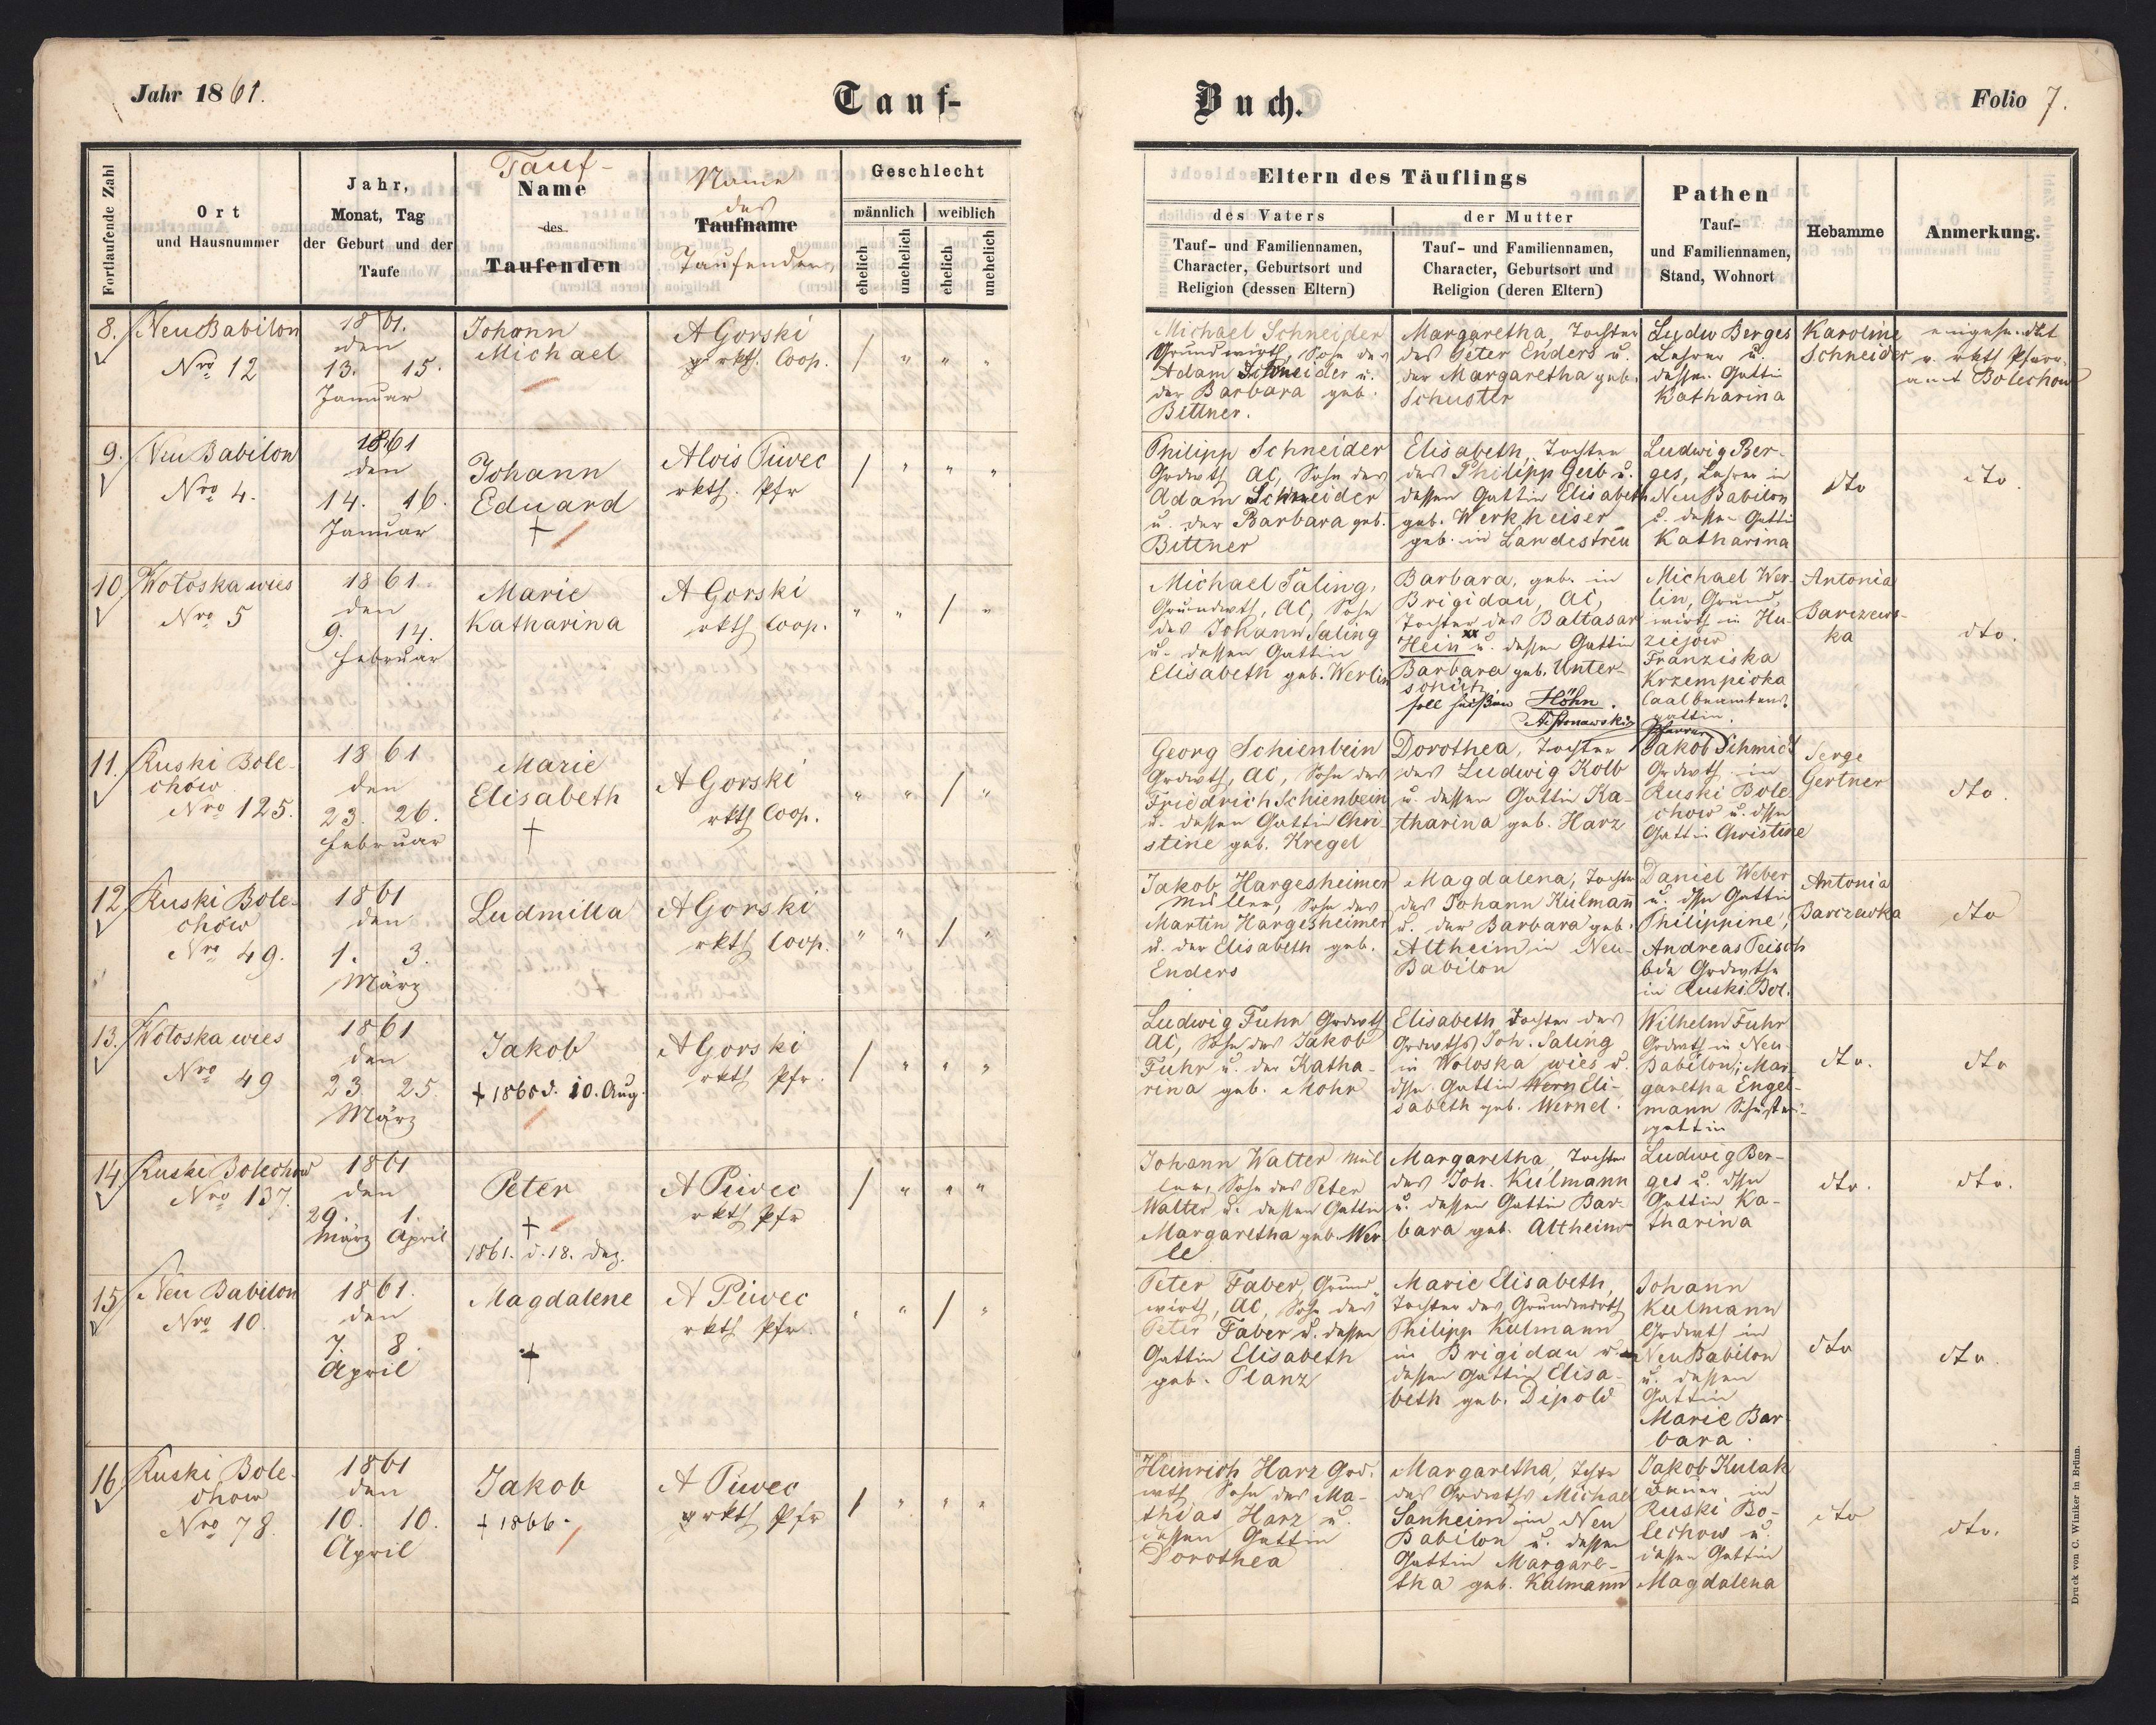 Jahr 1861.
Tauf-
Buch.
Folio 7.
Fortlaufende Zahl
Ort
und Hausnummer
Jahr,
Monat, Tag
der Geburt und der
Taufe
Tauf-
Name
des
Taufenden
Name
des
Taufname
Taufenden
Geschlecht
männlich
weiblich
ehelich
unehelich
ehelich
unehelich
Eltern des Täuflings
des Vaters
Tauf- und Familiennamen,
Character, Geburtsort und
Religion (dessen Eltern)
der Mutter
Tauf- und Familiennamen,
Character, Geburtsort und
Religion (deren Eltern)
Pathen
Tauf-
und Familiennamen,
Stand, Wohnort
Hebamme
Anmerkung.
8.
Neu Babilon
Nro 12
1861.
den
13. 15.
Januar
Johann
Michael
A Gorski
rkth. Coop.
/ " " "
Michael Schneider
Grundwirth, Sohn des
Adam Schneider u.
der Barbara geb.
Bittner.
Margaretha, Tochter
des Peter Enders u.
der Margaretha geb.
Schuster
Ludw Berges
Lehrer u.
dessen Gattin
Katharina
Karoline
Schneider
eingesendet
v. rkth Pfarr-
amt Bolechow
9.
Neu Babilon
Nro 4.
1861
den
14. 16.
Januar
Johann
Eduard
+
Alois Piwec
rkth. Pfr
/ " " "
Philipp Schneider
Grdwth, AC, Sohn des
Adam Schneider
u. der Barbara geb.
Bittner
Elisabeth, Tochter
des Philipp Geib u.
dessen Gattin Elisabeth
geb. Werkheiser
geb. in Landestreu
Ludwig Ber-
ges, Lehrer in
Neu Babilon
u. dessen Gatti
Katharina
dto
dto.
10.
Wołoska wies
Nro 5
1861.
den
9. 14.
Februar
Marie
Katharina
A Gorski
rkth Coop.
" " / "
Michael Saling,
Grundwth, AC, Sohn
des Johann Saling
u. dessen Gattin
Elisabeth geb. Werlin
Barbara, geb. in
Brigidau, AC,
Tochter des Baltasar
Hein xx u. dessen Gattin
Barbara geb. Unter-
schütz
soll heißen Höhn.
Pfarrer
Michael Wer-
lin, Grund
wirth in Hu-
ziejow
Franziska
Krzempicka
gattin.
Antonia
Barczews-
ka
dto.
11.
Ruski Bole-
chow
Nro 125.
1861
den
23. 26.
Februar
Marie
Elisabeth
+
A Gorski
rkth Coop.
" " / "
Georg Schienbein
Grdwth, AC, Sohn des
Friedrich Schienbein
u. dessen Gattin Chri-
stine geb. Kregel
Dorothea, Tochter
des Ludwig Kolb
u. dessen Gattin Ka-
tharina geb. Harz
Jakob Schmidt
Grdwth in
Ruski Bole
chow u. dssn
Gattin Christine
Serge
Gertner
dto.
12.
Ruski Bole-
chow
Nro 49.
1861
den
1. 3.
März
Ludmilla
A Gorski
rkth Coop.
" " / "
Jakob Hargesheimer
Müller, Sohn des
Martin Hargesheimer
u. der Elisabeth geb.
Enders
Magdalena, Tochter
des Johann Kulman
u. der Barbara geb.
Altheim in Neu-
Babilon
Daniel Weber
u. dssn Gattin
Philippine,
Andreas Peisch
bde Grdwthe
in Ruski Bol.
Antonia
Barczewska
dto
13.
Wołoska wies
Nro 49
1861
den
23. 25.
März
Jakob
+ 1865 d. 10. Aug.
A Gorski
rkth Pfr.
/ " " "
Ludwig Fuhr Grdwth
AC, Sohn des Jakob
Fuhr u. der Katha-
rina geb. Mohr
Elisabeth Tochter des
Grdwths Joh. Saling
in Woloska wies u.
dssn Gattin Eli-
sabeth geb. Wernel.
Wilhelm Fuhr
Grdwth in Neu
Babilon; Mar-
garetha Engel-
mann Schuster-
gattin
dto.
dto
14.
Ruski Bolechow
Nro 137.
1861
den
29. 1.
März April
Peter
+
1861. d. 18. Dez.
A Piwec
rkth Pfr
/ " " "
Johann Walter Mül
ler, Sohn des Peter
Walter u. dessen Gattin
Margaretha geb. Wer
le
Margaretha, Tochter
des Joh. Kulmann
u. dessen Gattin Bar-
bara geb. Altheim
Ludwig Ber-
ges u. dssn
Gattin Ka-
tharina
dto.
dto.
15.
Neu Babilon
Nro 10.
1861.
den
7. 8.
April
Magdalene
+
A Piwec
rkth Pfr.
" " / "
Peter Faber, Grund
wirth, AC, Sohn des
Peter Faber u. dessen
Gattin Elisabeth
geb. Planz
Marie Elisabeth,
Tochter des Grundwirth
Philipp Kulmann
in Brigidau u.
dessen Gattin Elisa-
beth geb. Dipold
Johann
Kulmann
Grdwth in
Neu Babilon
u. dessen
Gattin
Marie Bar-
bara.
dto
dto.
16.
Ruski Bole-
chow
Nro 78.
1861
den
10. 10.
April
Jakob
+ 1866.
A Piwec
rkth Pfr
/ " " "
Heinrich Harz Grd.
wth, Sohn des Ma-
thias Harz u.
dessen Gattin
Dorothea
Margaretha, Tchtr
des Grdwths Michael
Sanheim in Neu
Babilon u. dessen
Gattin Margare-
tha geb. Kulmann
Jakob Kulak
in
Ruski Bo-
lechow u.
dessen Gattin
Magdalena
dto
dto.
Druck von C. Winiker in Brünn.